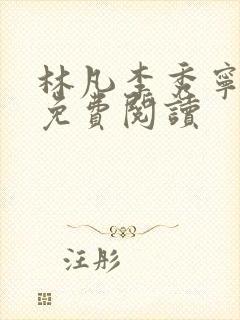 林凡李秀寧
免費閱讀
汪彤